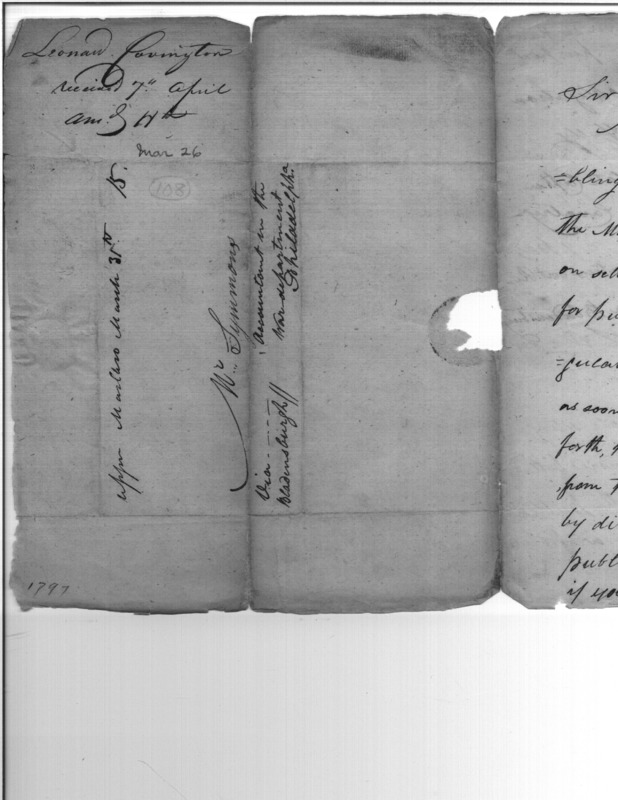 Leonard Covington
received 7th April
ansd 11th
Mar 26
108
uppr Marlbro March 31st 15.
Mr Symmons
Accountant in the
War department
Philadelpha
Via
Bladensburgh
1797
Sir
=bling
the M
on set
for pu
=gular
as soon
forth,
from
by di
publ
if you